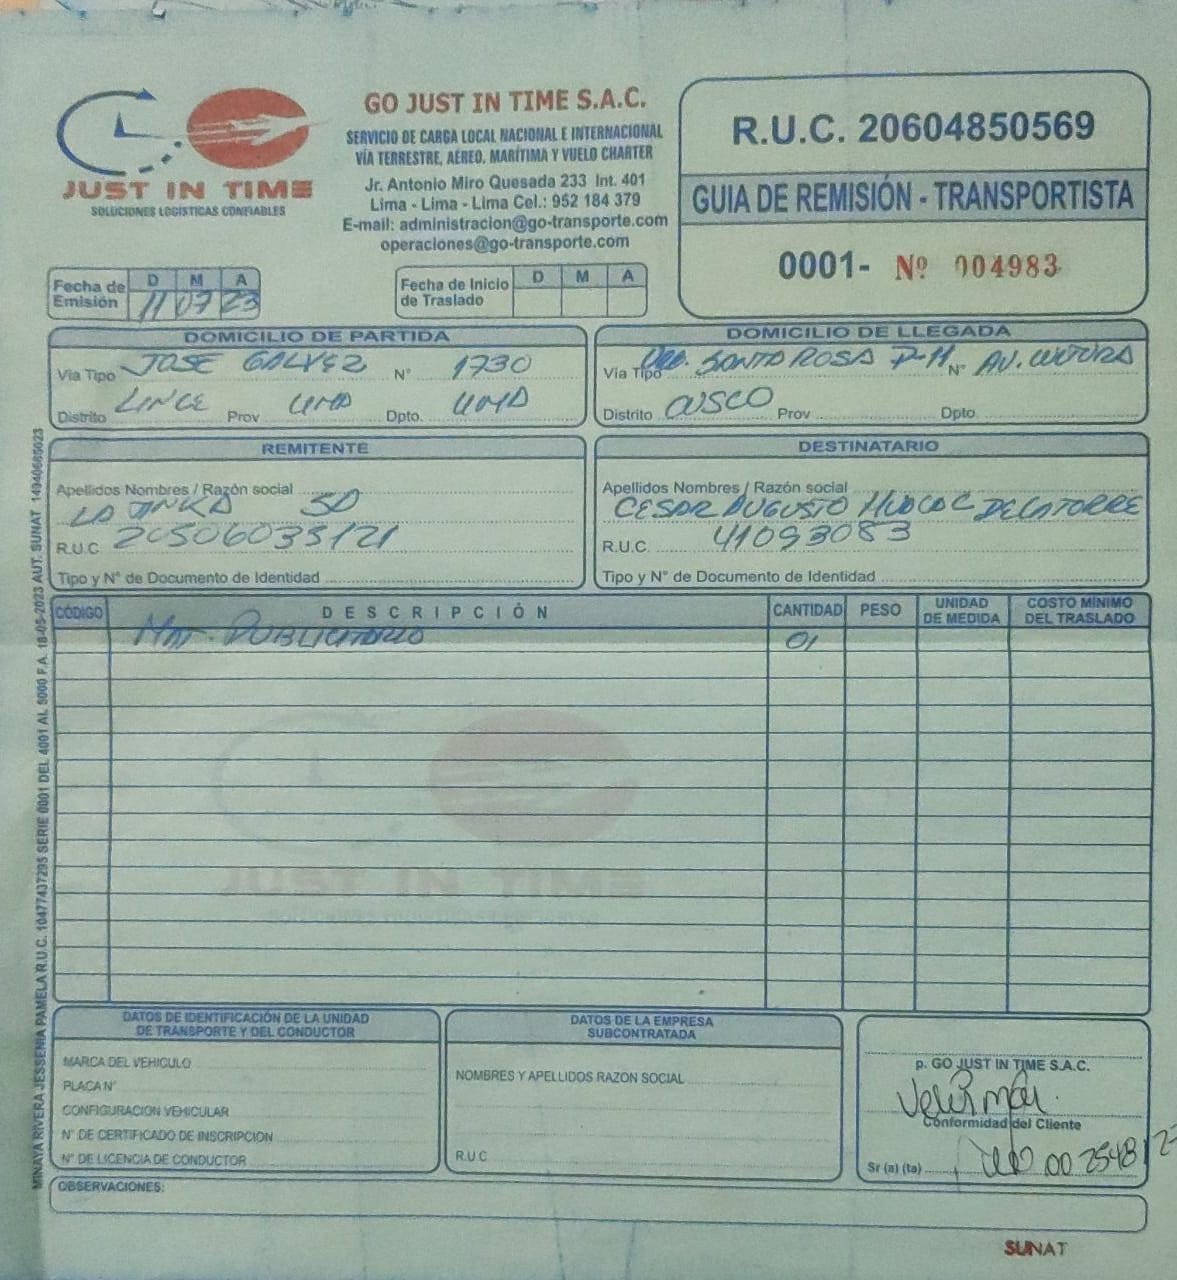 JUST IN TIME
SOLUCIONES LOGISTICAS CONFIABLES
GO JUST IN TIME S.A.C.
SERVICIO DE CARGA LOCAL NACIONAL E INTERNACIONAL
VÍA TERRESTRE, AÉREO, MARÍTIMA Y VUELO CHARTER
Jr. Antonio Miro Quesada 233 Int. 401
Lima - Lima - Lima Cel.: 952 184 379
E-mail: administracion@go-transporte.com
operaciones@go-transporte.com
R.U.C. 20604850569
GUIA DE REMISIÓN - TRANSPORTISTA
0001- Nº 004983
Fecha de Emisión D M A
11 07 23
Fecha de Inicio de Traslado D M A
DOMICILIO DE PARTIDA
Via Tipo JOSE GALVEZ N° 1730
Distrito LINCE Prov LIMA Dpto. LIMA
DOMICILIO DE LLEGADA
Via Tipo URB. SANTA ROSA P-11 N° AV. CULTURA
Distrito CUSCO Prov Dpto.
REMITENTE
Apellidos Nombres / Razón social
LA TINKA SA
R.U.C. 20506035121
Tipo y N° de Documento de Identidad
DESTINATARIO
Apellidos Nombres / Razón social
CESAR AUGUSTO HUACAC DE LA TORRE
R.U.C. 41093083
Tipo y N° de Documento de Identidad
CÓDIGO DESCRIPCIÓN CANTIDAD PESO UNIDAD DE MEDIDA COSTO MÍNIMO DEL TRASLADO
MAT. PUBLICITARIO 01
JUST IN TIME
DATOS DE IDENTIFICACIÓN DE LA UNIDAD
DE TRANSPORTE Y DEL CONDUCTOR
MARCA DEL VEHICULO
PLACA N°
CONFIGURACION VEHICULAR
N° DE CERTIFICADO DE INSCRIPCION
N° DE LICENCIA DE CONDUCTOR
DATOS DE LA EMPRESA
SUBCONTRATADA
NOMBRES Y APELLIDOS RAZON SOCIAL
R.U.C
p. GO JUST IN TIME S.A.C.
Conformidad del Cliente
Sr (a) (ta)
OBSERVACIONES:
SUNAT
MINAYA RIVERA JESSENIA PAMELA R.U.C. 10477437295 SERIE 0001 DEL 4001 AL 5000 F.A. 18-05-2023 AUT. SUNAT 14940685023